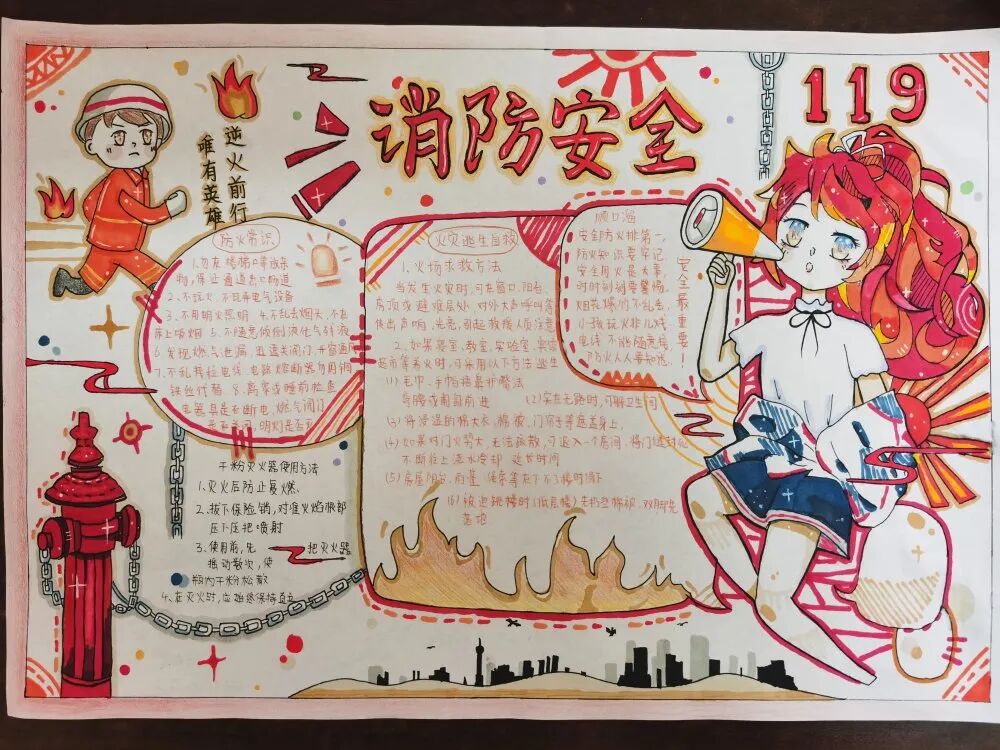 消防安全
119
逆火前行
唯有英雄
防火常识
1.勿在楼梯口等放杂
物,保证通道出口畅通
2.不玩火,不玩弄电气设备
3.不用明火照明 4.不乱丢烟头,不在
床上吸烟 5.不随意倾倒液化气残液
6.发现燃气泄漏,迅速关阀门,开窗通风
7.不乱接拉电线,电路熔断器勿用铜
铁丝代替 8.离家或睡前检查
电器具是否断电,燃气阀门
是否关闭,明火是否
干粉灭火器使用方法
1.灭火后防止复燃、
2.拔下保险销,对准火焰根部
压下压把喷射
3.使用前,先 把灭火器
摇动数次,使
瓶内干粉松散
4.在灭火时,应始终保持直立
火灾逃生自救
1.火场求救方法
当发生火灾时,可在窗口、阳台、
房顶或避难层处,对外大声呼叫等
发出声响、光亮,引起救援人员注意
2.如果寝室、教室、实验室、
超市等着火时,可采用以下方法逃生
(1)毛巾、手帕捂鼻护嘴法
弯腰或匍匐前进 (2)实在无路时,可躲卫生间
(3)将浸湿的棉大衣、棉被、门帘子等遮盖身上,
(4)如果烤门火势大,无法疏散,可退入一个房间,将门缝封死
不断往上浇水冷却 延长时间
(5)房屋阳台、雨篷、
(6)被迫跳楼时(低层楼)先扔
落地
顺口溜
安全防火排第一,
防火知识要牢记。
安全用火是大事,
时时刻刻要警惕。
烟花爆竹不乱丢,
小孩玩火非儿戏,
电线不能随意接,
防火人人要知悉。
安全最重要!